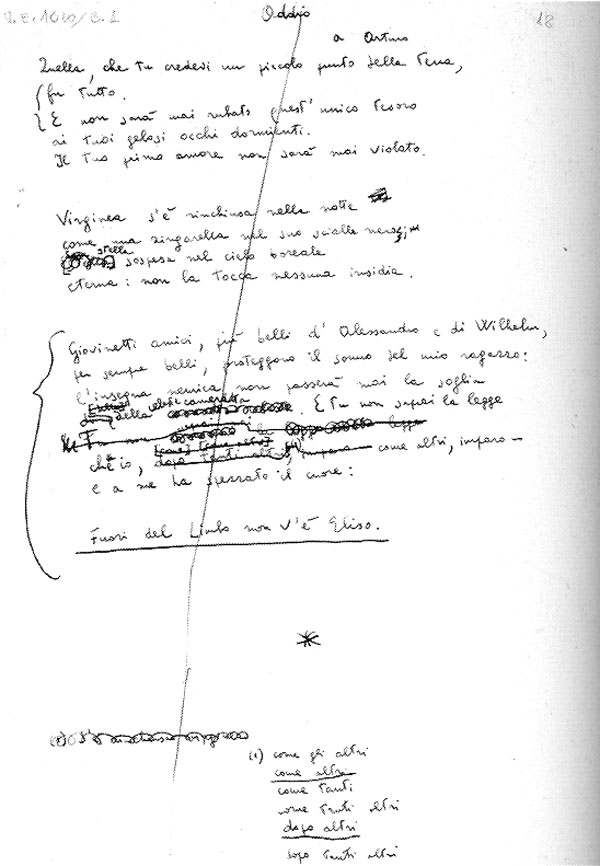 V.E. 1620/B.1
18
Addio
a Arturo
Quella, che tu credevi un piccolo punto della terra,
fu tutto.
E non sarà mai rubato quest'unico tesoro
ai tuoi gelosi occhi dormienti.
Il tuo primo amore non sarà mai violato.
Virginea s'è rinchiusa nella notte
come una zingarella nel suo scialle nero;
stella sospesa nel cielo boreale
eterna: non la tocca nessuna insidia.
Giovinetti amici, più belli d'Alessandro e di Wilhelm,
per sempre belli, proteggono il sonno del mio ragazzo:
l'insegna nemica non passerà mai la soglia
della cameretta. E tu non saprai la legge
ch'io, dopo tanti altri, imparo come altri, imparo –
e a me ha spezzato il cuore:
Fuori del Limbo non v'è Eliso.
(1) come gli altri
come altri
come tanti
come tanti altri
dopo altri
dopo tanti altri